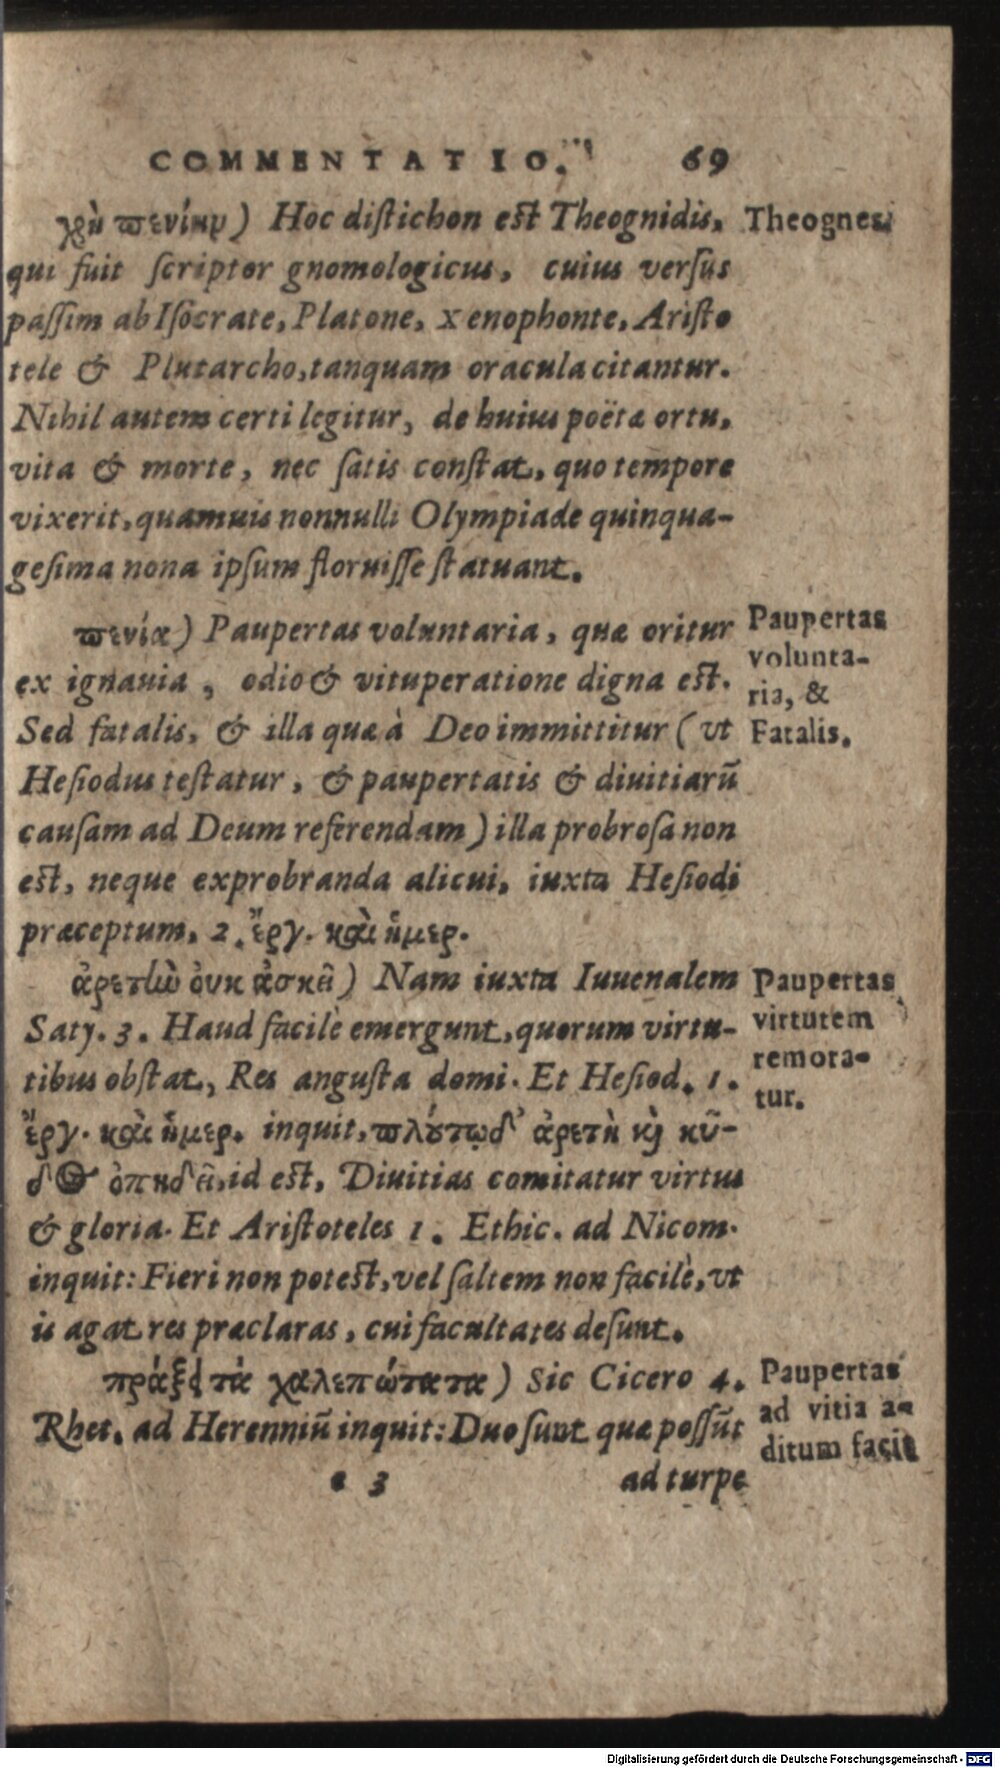 COMMENTATIO. 69
χρὴ πενίην) Hoc distichon est Theognidis, Theognes.
qui fuit scriptor gnomologicus, cuius versus
passim ab Isocrate, Platone, Xenophonte, Aristo
tele & Plutarcho, tanquam oracula citantur.
Nihil autem certi legitur, de huius poëtæ ortu,
vita & morte, nec satis constat, quo tempore
vixerit, quamuis nonnulli Olympiade quinqua-
gesima nona ipsum floruisse statuant.
πενία) Paupertas voluntaria, quæ oritur
ex ignauia, odio & vituperatione digna est.
Sed fatalis, & illa quæ à Deo immittitur (vt
Hesiodus testatur, & paupertatis & diuitiarū
causam ad Deum referendam) illa probrosa non
est, neque exprobranda alicui, iuxta Hesiodi
præceptum, 2. ἔργ. καὶ ἡμερ.
Paupertas
volunta-
ria, &
Fatalis.
ἀρετὴν οὐκ ἀσκεῖ) Nam iuxta Iuuenalem
Saty. 3. Haud facilè emergunt, quorum virtu-
tibus obstat, Res angusta domi. Et Hesiod. 1.
ἔργ. καὶ ἡμερ. inquit, πλούτῳ δ' ἀρετὴ καὶ κῦ-
δος ὀπηδεῖ, id est, Diuitias comitatur virtus
& gloria. Et Aristoteles 1. Ethic. ad Nicom.
inquit: Fieri non potest, vel saltem non facilè, vt
is agat res præclaras, cui facultates desunt.
Paupertas
virtutem
remora-
tur.
πράξει τὰ χαλεπώτατα) Sic Cicero 4.
Rhet. ad Herenniū inquit: Duo sunt quæ possūt
Paupertas
ad vitia a-
ditum facit
e 3 ad turpe
Digitalisierung gefördert durch die Deutsche Forschungsgemeinschaft - DFG